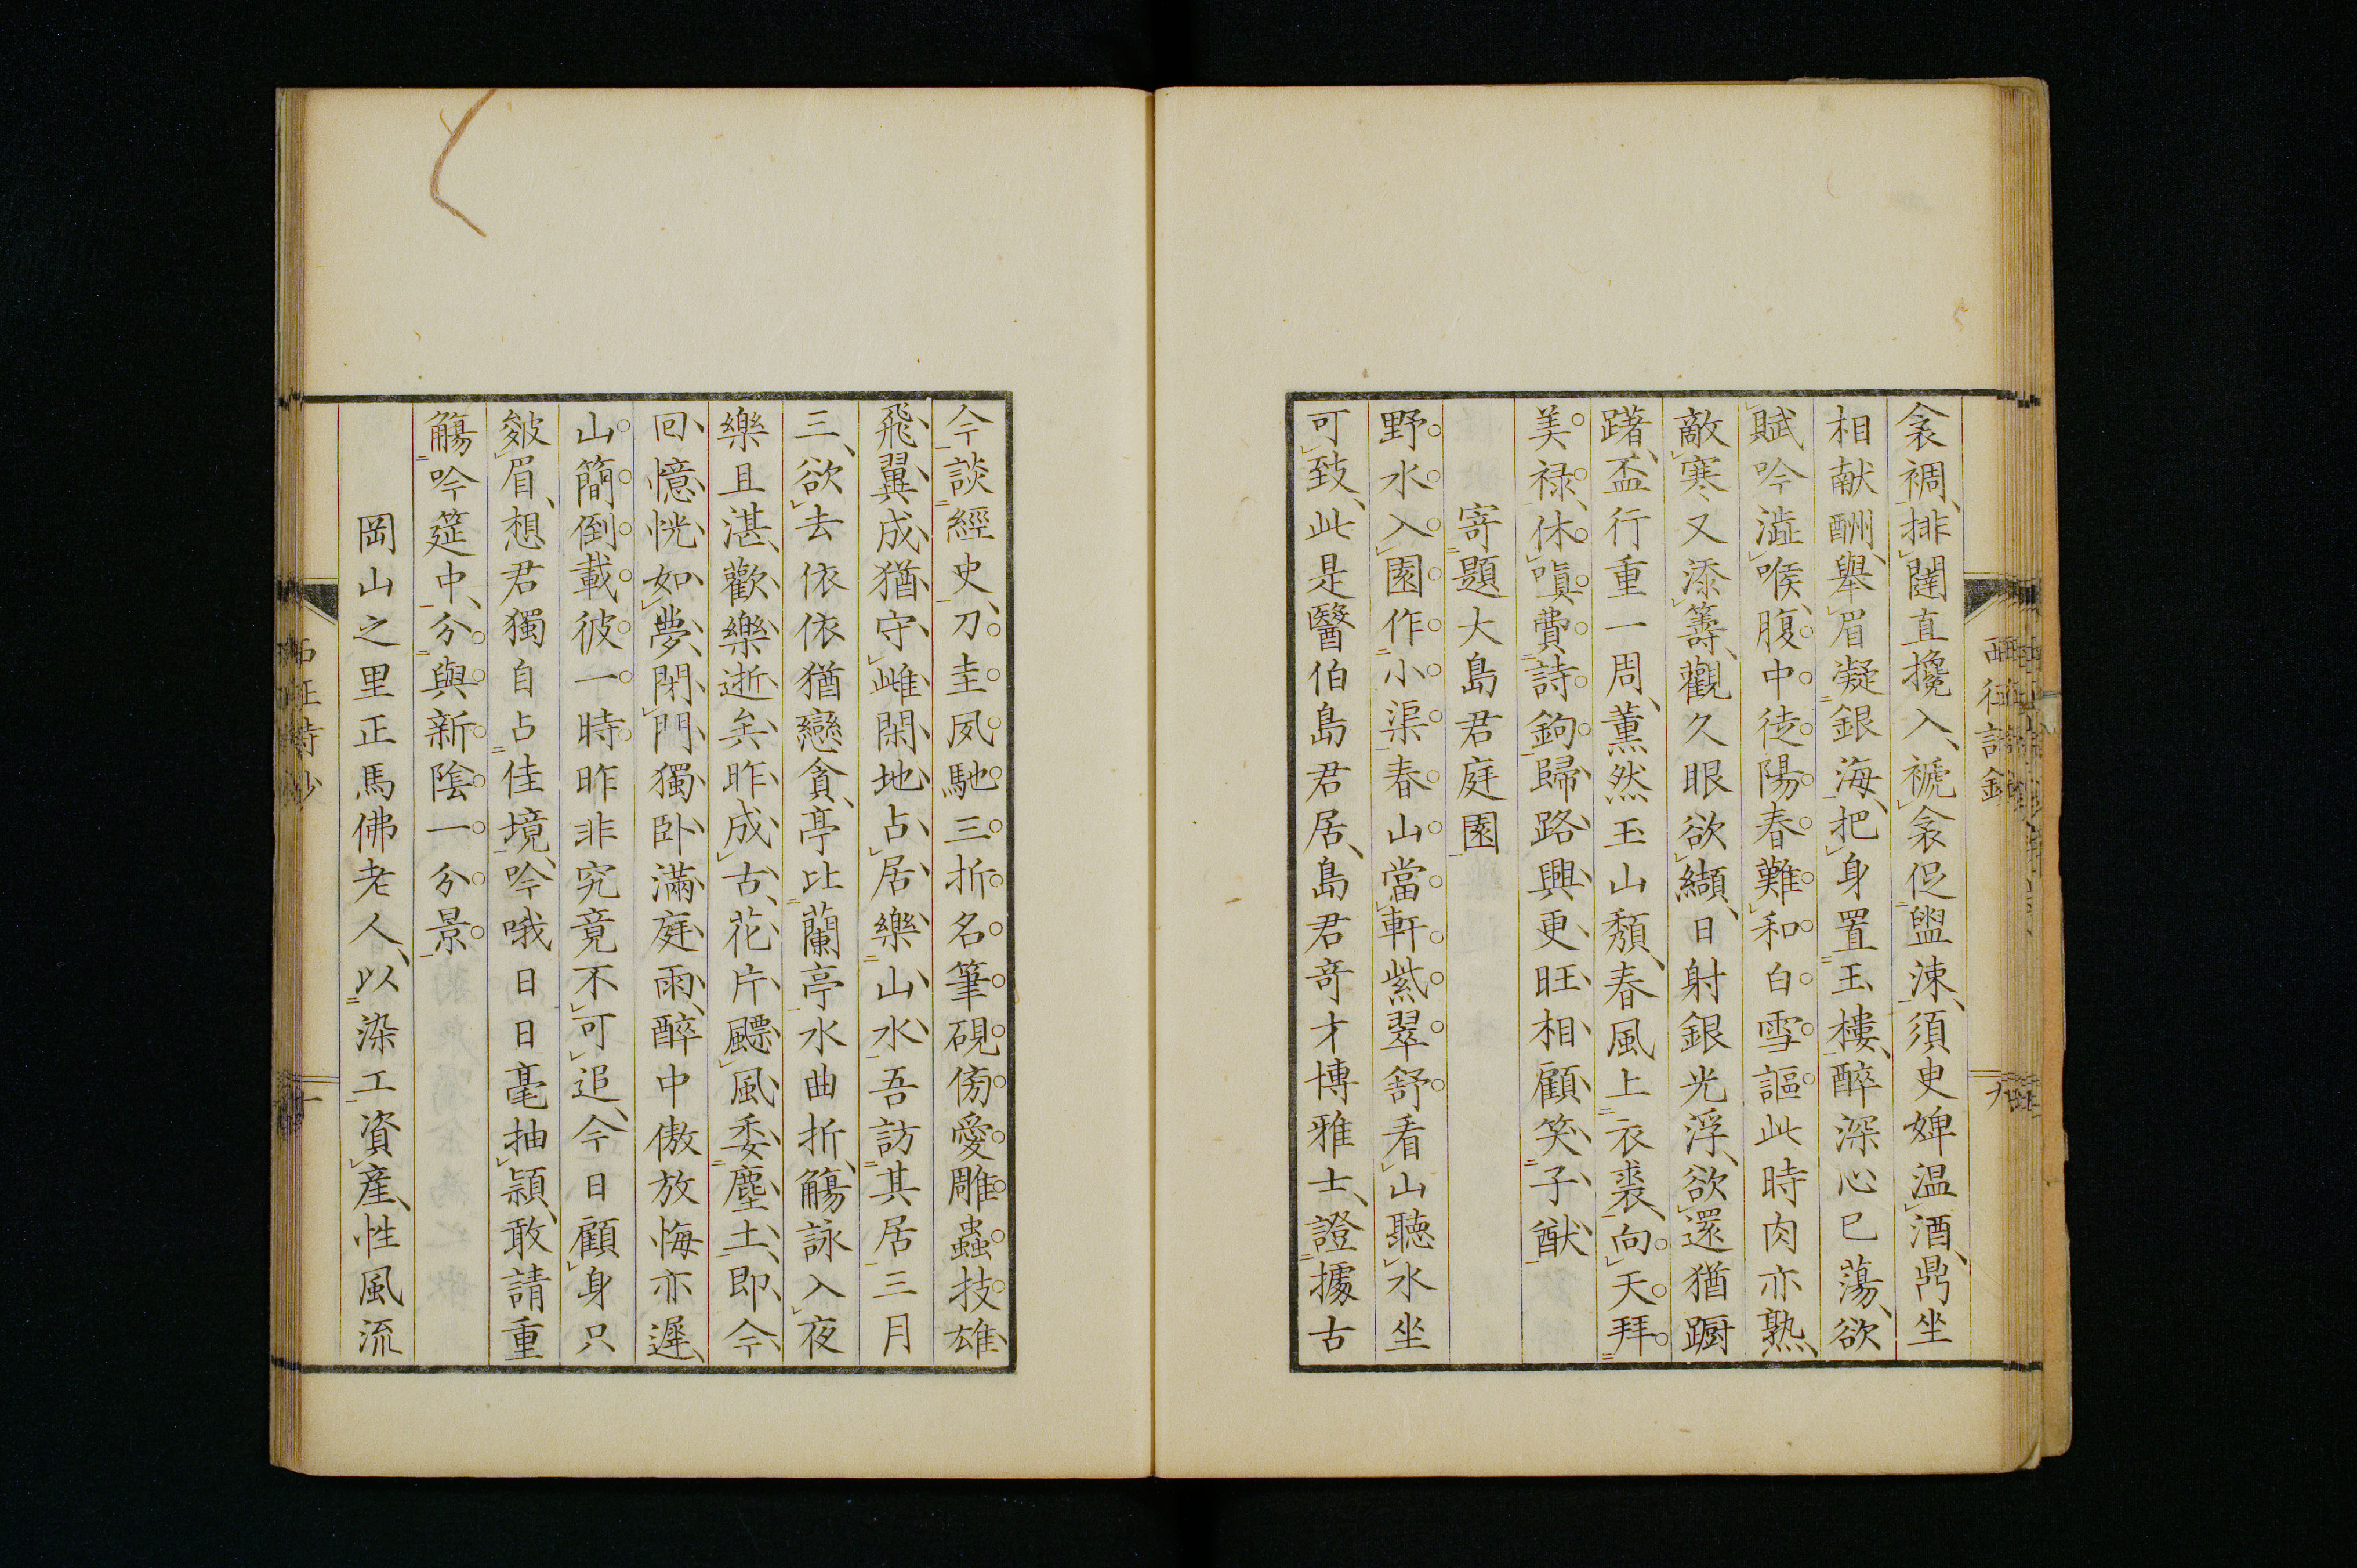 衾裯、排闥直攙入、褫衾促盥涑、須臾婢温酒、鼎坐
相献酬、舉眉凝銀海、把身置玉樓、醉深心已蕩、欲
賦吟澁喉、腹中徒陽春難和白雪謳此時肉亦熟、
敵寒又添籌、觀久眼欲纈、日射銀光浮、欲還猶踟
躇、盃行重一周、薫然玉山頽、春風上衣裘、向天拜
美禄、休嗔費詩鉤歸路興更旺相顧笑子猷
寄題大島君庭園
野水入園作小渠春山當軒紫翠舒看山聽水坐
可致、此是醫伯島君居、島君竒才博雅士、證據古
今談經史、刀圭夙馳三折名筆硯傍愛雕蟲技雄
飛翼成猶守雌閑地占居樂山水吾訪其居三月
三、欲去依依猶戀貪、亭比蘭亭水曲折、觴詠入夜
樂且湛、歡樂逝矣昨成古、花片飃風委塵土、即今
回憶恍如夢、閉門獨卧滿庭雨、醉中傲放悔亦遲、
山簡倒載彼一時昨非究竟不可追、今日顧身只
皴眉、想君獨自占佳境、吟哦日日毫抽穎、敢請重
觴吟筵中、分與新陰一分景
岡山之里正馬佛老人、以染工資産、性風流